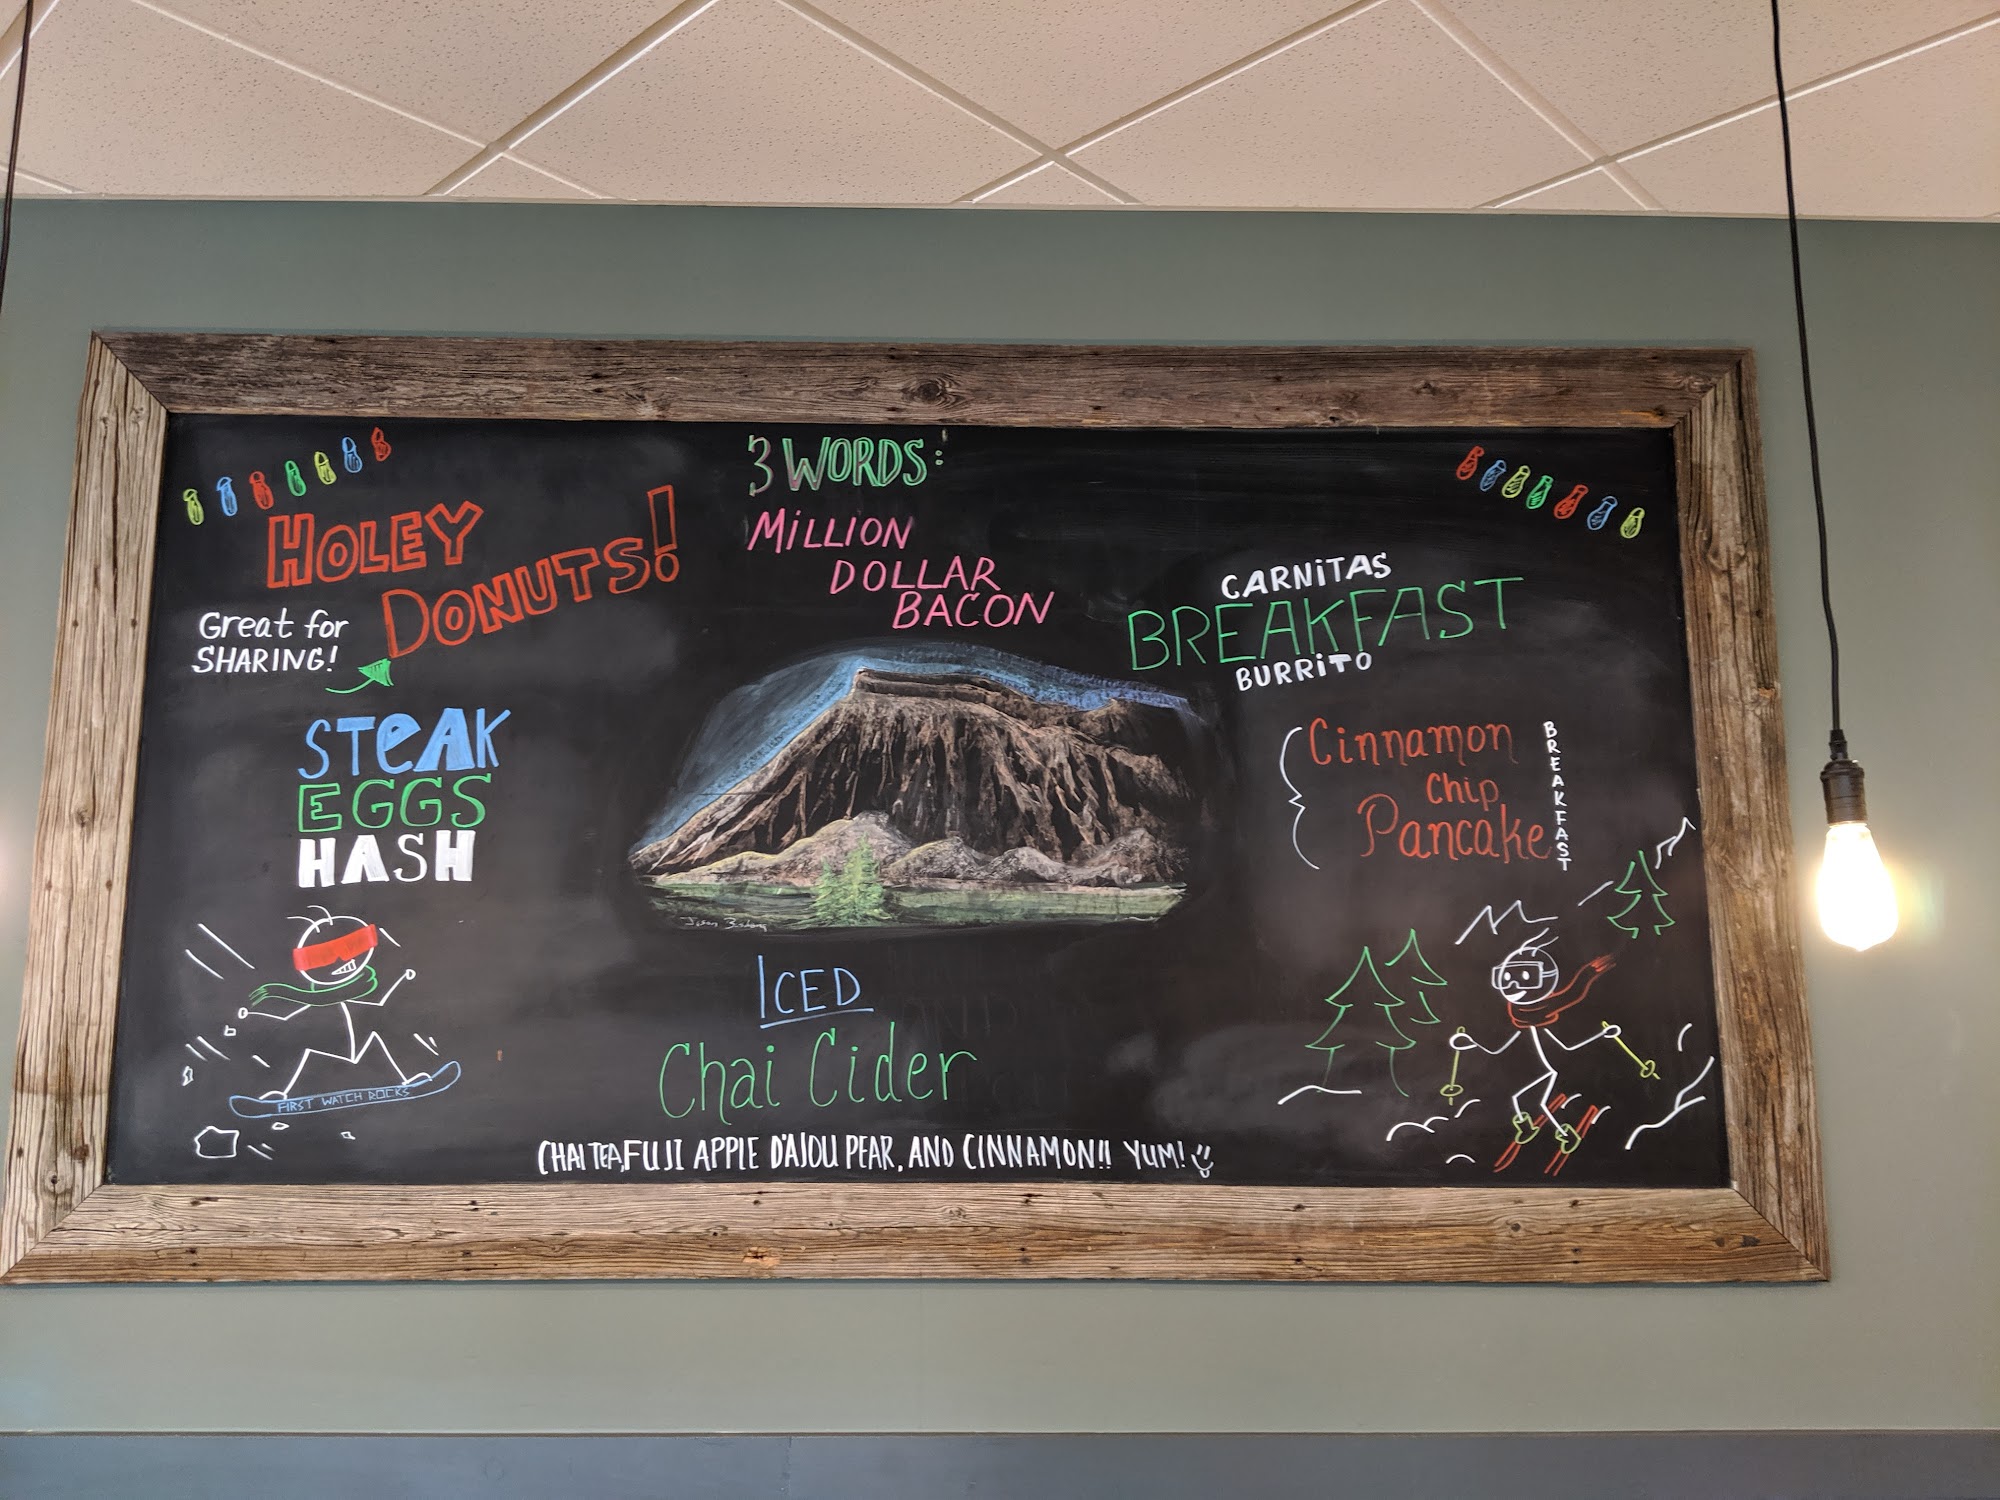 HOLEY
DONUTS!
Great for
SHARING!
STeAK
EGGS
HASH
FIRST WATCH ROCKS
3 WORDS:
MiLLION
DOLLAR
BACON
ICED
Chai Cider
CHAI TEA, FUJI APPLE D'AJOU PEAR, AND CINNAMON!! YUM!
CARNiTAS
BREAKFAST
BURRiTO
Cinnamon
Chip
Pancake
BREAKFAST